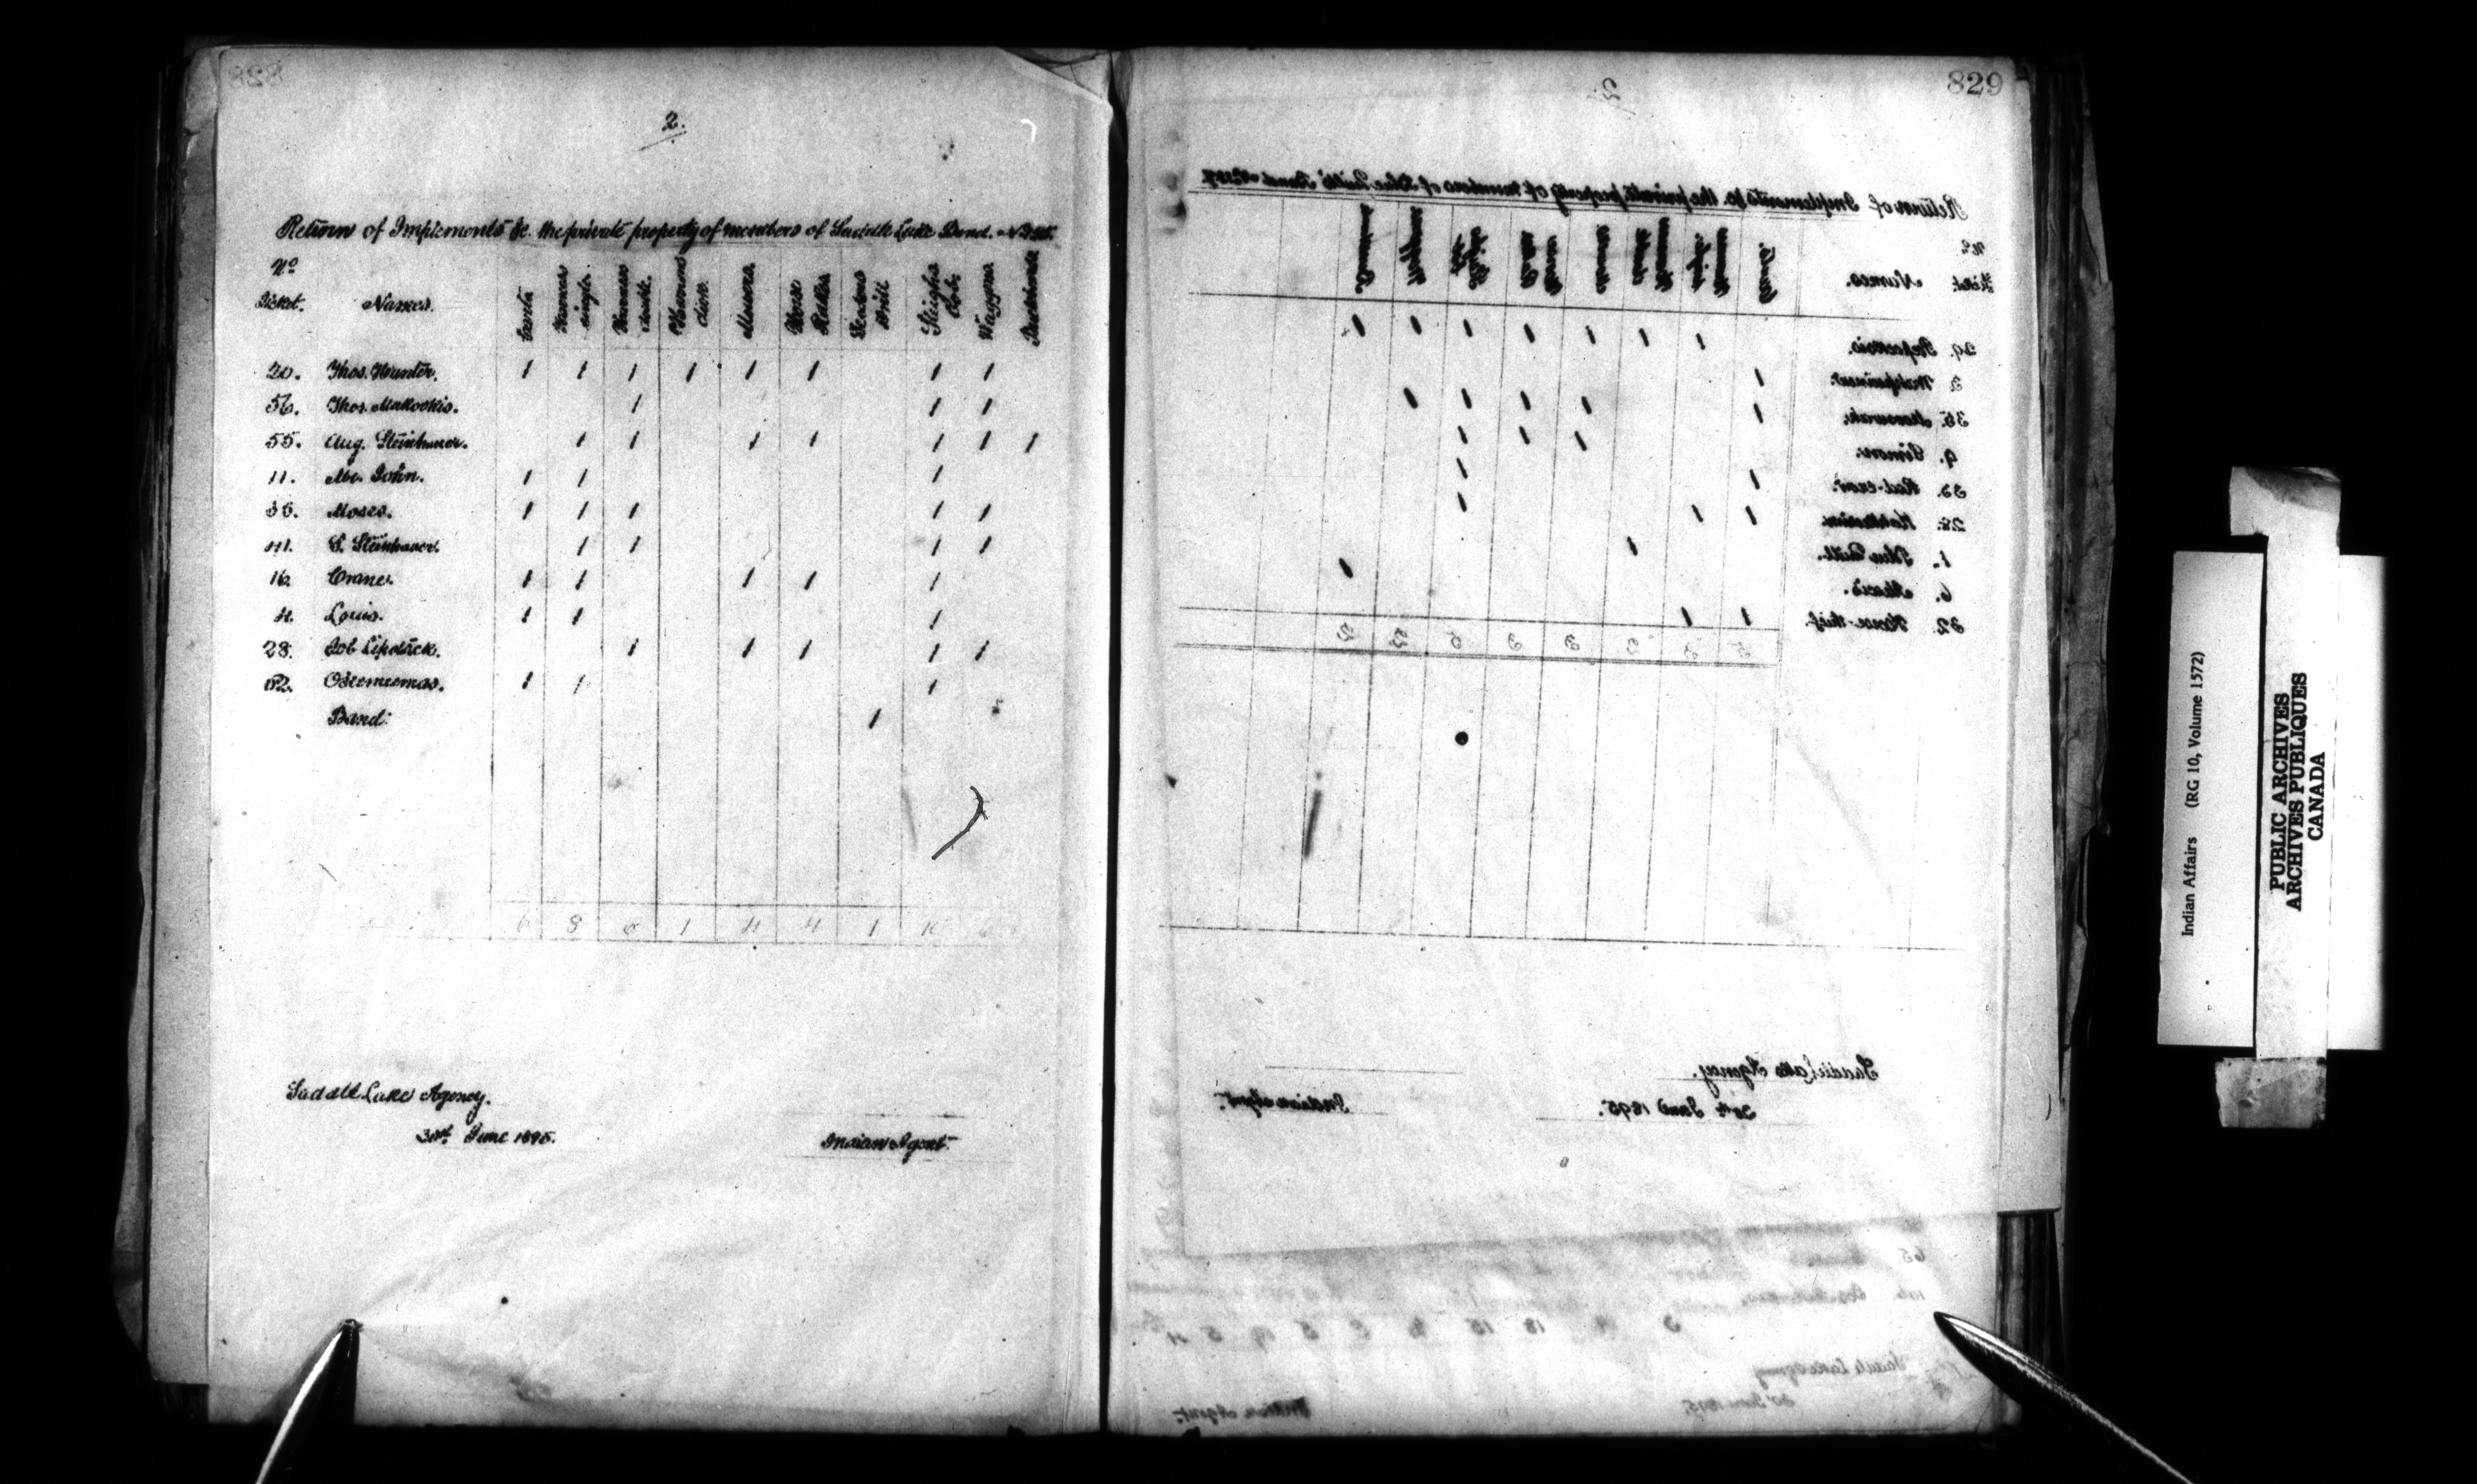 828
2.
Return of Implements &c. the private property of members of Saddle Lake Band. No 125.
No Ticket. Names. Carts Harness single. Harness double. Harrows disc. Mowers. Horse Rakes Seeders Drill Sleighs Bob. Waggons Buckboards
20. Thos. Hunter. 1 1 1 1 1 1 1 1
56. Thos. Makookis. 1 1 1
55. Aug. Steinhauer. 1 1 1 1 1 1 1
11. Abr. John. 1 1 1
35. Moses. 1 1 1 1 1
41. S. Steinhauer. 1 1 1 1
16. Crane. 1 1 1 1 1
4. Louis. 1 1 1
28. Job 1 1 1 1 1
62. 1 1 1
Band: 1
6 8 6 1 4 4 1 10 6
Saddle Lake Agency.
30th June 1895.
Indian Agent.
829
2.
Return of Implements &c. the private property of members of Blue Quill's Band No 127
No Ticket. Names. Carts. Harness single. Harness double Mowers Horse Rakes Sleighs Bob Waggons
29. 1 1 1 1 1 1 1
2. 1
35. 1 1 1 1 1
9. Simon. 1 1 1
33. Red-crow. 1 1
28. 1 1 1
1. Blue Quill. 1
6. Alexis. 1
32. Horse-thief. 1 1
Saddle Lake Agency.
30th June 1895.
Indian Agent.
65
Saddle Lake Agency
30th June 1895.
Indian Agent.
Indian Affairs (RG 10, Volume 1572)
PUBLIC ARCHIVES
ARCHIVES PUBLIQUES
CANADA